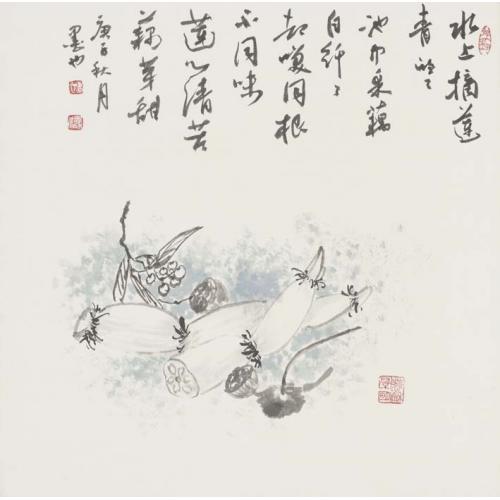 水上摘莲
青的々
中采藕
白纤々
却同根
不同味
莲心清苦
藕芽甜
庚子秋月
墨也